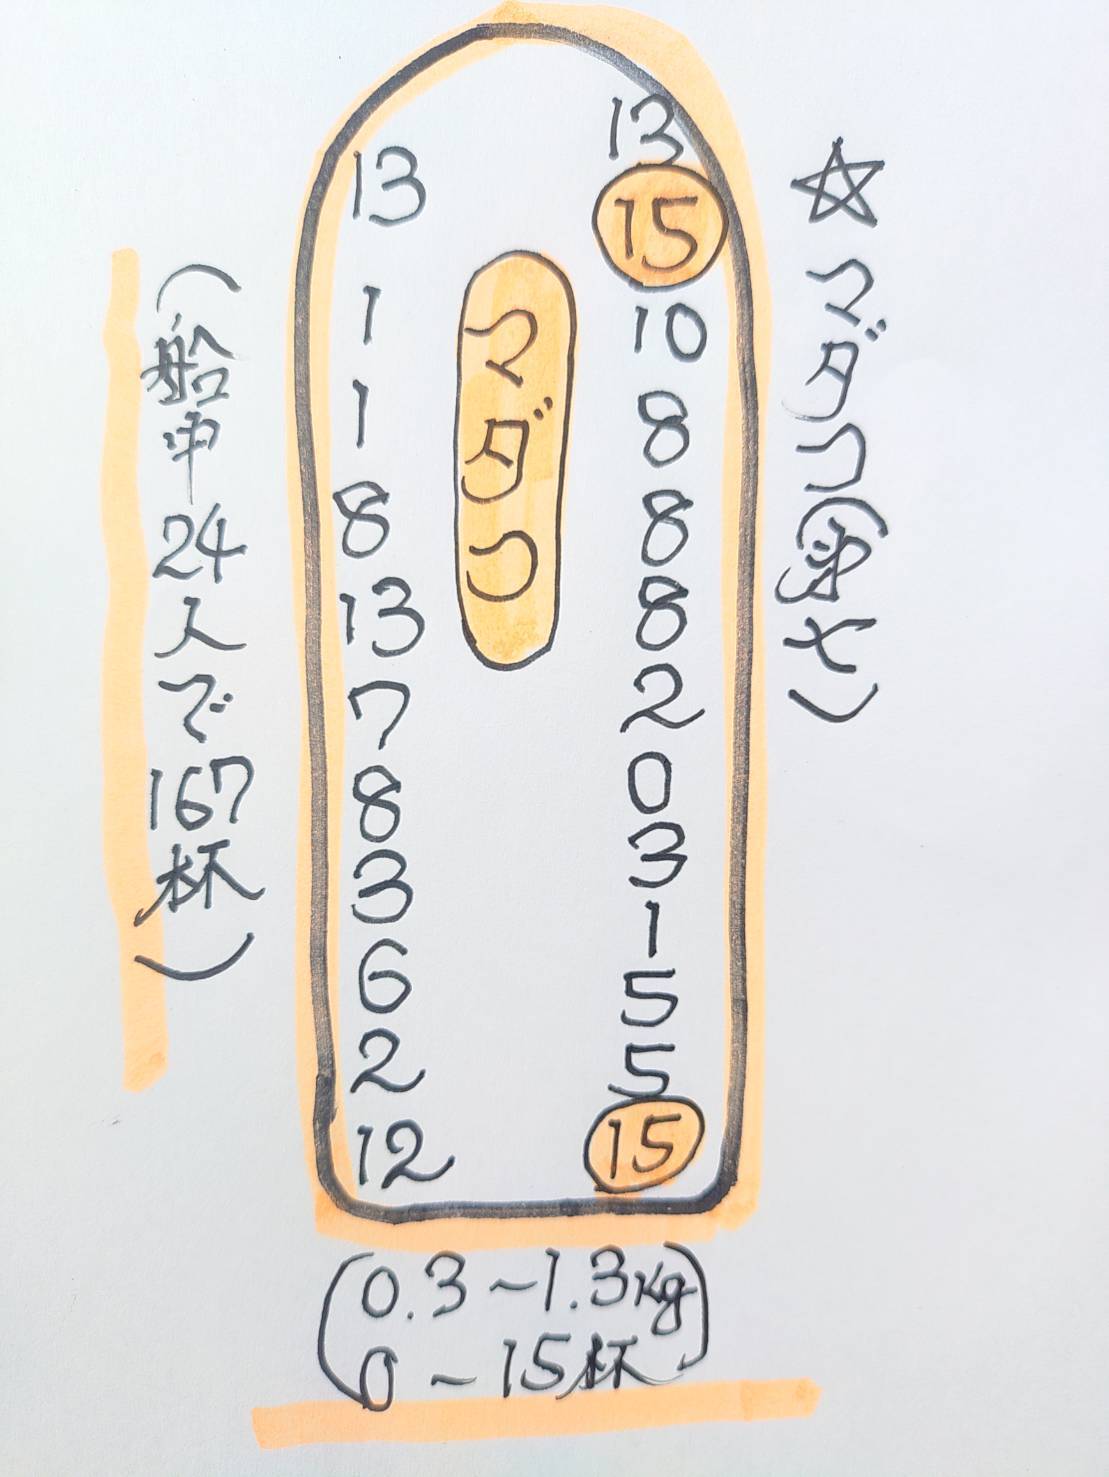 ☆マダコ(第七)
13
15
10
8
8
8
2
0
3
1
5
5
15
マダコ
13
1
1
8
13
7
8
3
6
2
12
(船中24人で167杯)
(0.3~1.3kg
0~15杯)